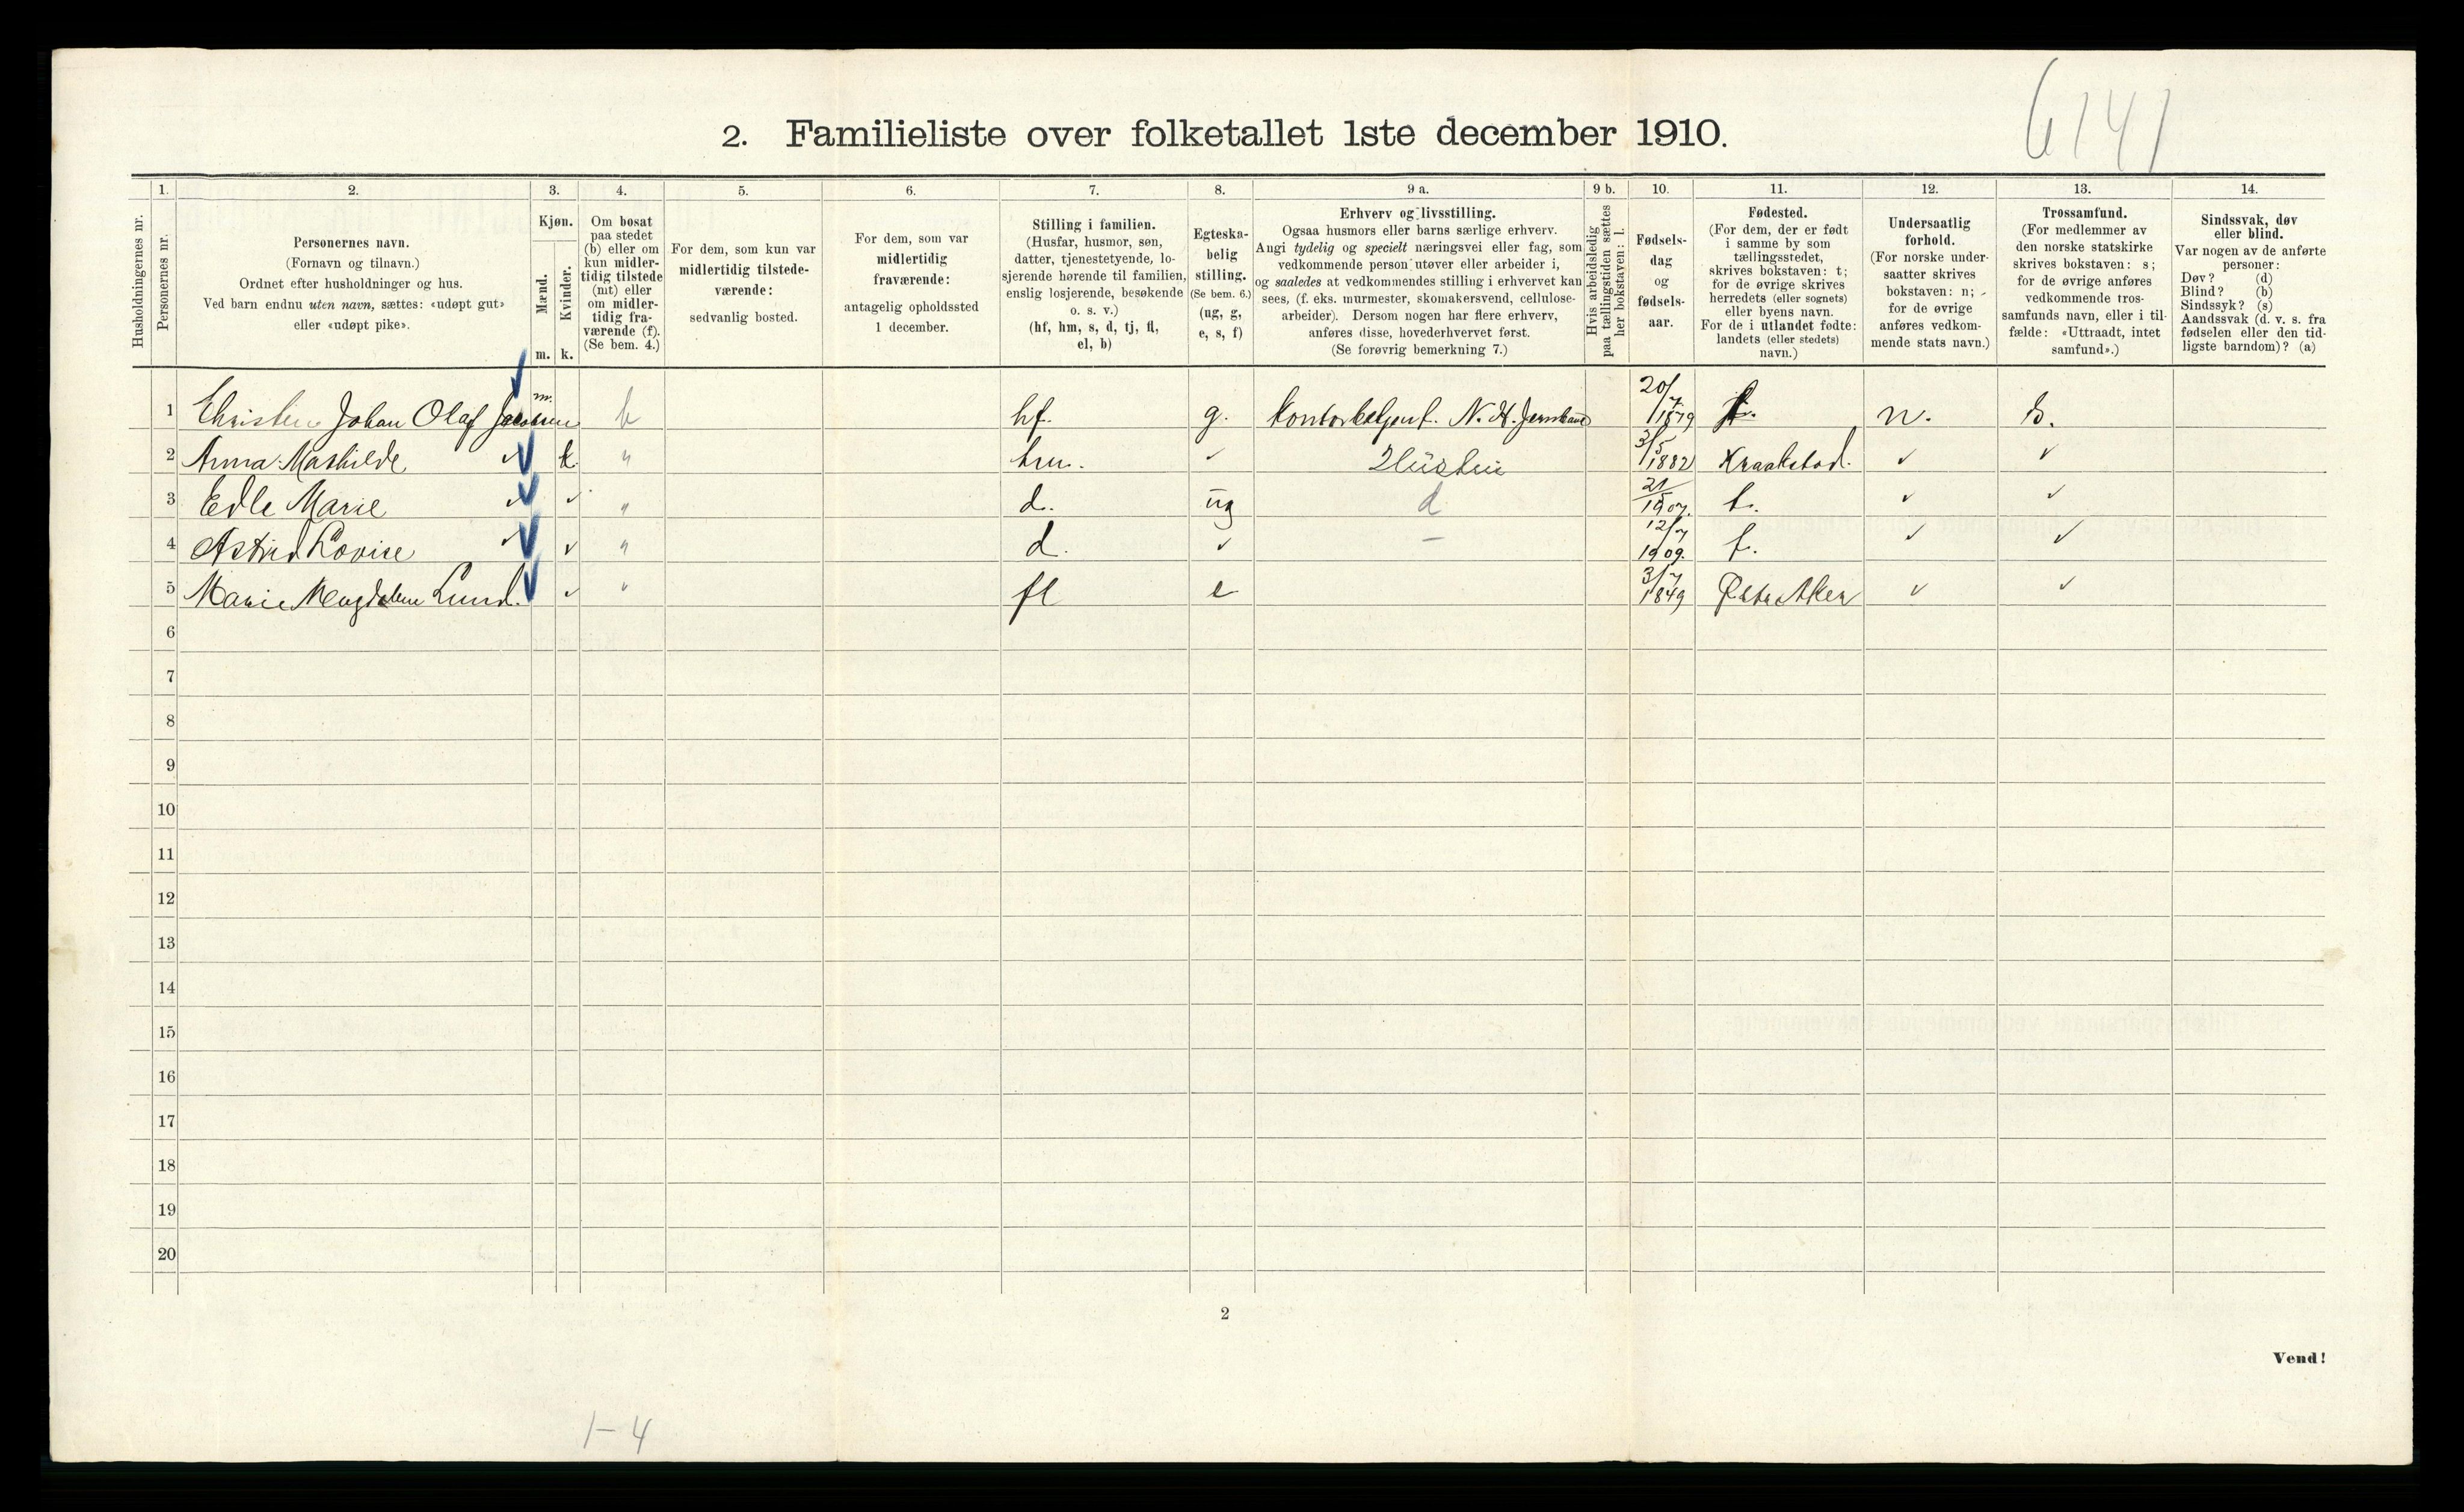 6141
2. Familieliste over folketallet 1ste december 1910.
1. 2. 3. 4. 5. 6. 7. 8. 9 a. 9 b. 10. 11. 12. 13. 14.
Husholdningernes nr.
Personernes nr.
Personernes navn.
(Fornavn og tilnavn.)
Ordnet efter husholdninger og hus.
Ved barn endnu uten navn, sættes: «udøpt gut»
eller «udøpt pike».
Kjøn.
Mænd.
Kvinder.
m. k.
Om bosat
paa stedet
(b) eller om
kun midler-
tidig tilstede
(mt) eller
om midler-
tidig fra-
værende (f).
(Se bem. 4.)
For dem, som kun var
midlertidig tilstede-
værende:
sedvanlig bosted.
For dem, som var
midlertidig
fraværende:
antagelig opholdssted
1 december.
Stilling i familien.
(Husfar, husmor, søn,
datter, tjenestetyende, lo-
sjerende hørende til familien,
enslig losjerende, besøkende
o. s. v.)
(hf, hm, s, d, tj, fl,
el, b)
Egteska-
belig
stilling.
(Se bem. 6.)
(ug, g,
e, s, f)
Erhverv og livsstilling.
Ogsaa husmors eller barns særlige erhverv.
Angi tydelig og specielt næringsvei eller fag, som
vedkommende person utøver eller arbeider i,
og saaledes at vedkommendes stilling i erhvervet kan
sees, (f. eks. murmester, skomakersvend, cellulose-
arbeider). Dersom nogen har flere erhverv,
anføres disse, hovederhvervet først.
(Se forøvrig bemerkning 7.)
Hvis arbeidsledig
paa tællingstiden sættes
her bokstaven: l.
Fødsels-
dag
og
fødsels-
aar.
Fødested.
(For dem, der er født
i samme by som
tællingsstedet,
skrives bokstaven: t;
for de øvrige skrives
herredets (eller sognets)
eller byens navn.
For de i utlandet fødte:
landets (eller stedets)
navn.)
Undersaatlig
forhold.
(For norske under-
saatter skrives
bokstaven: n;
for de øvrige
anføres vedkom-
mende stats navn.)
Trossamfund.
(For medlemmer av
den norske statskirke
skrives bokstaven: s;
for de øvrige anføres
vedkommende tros-
samfunds navn, eller i til-
fælde: «Uttraadt, intet
samfund».)
Sindssvak, døv
eller blind.
Var nogen av de anførte
personer:
Døv? (d)
Blind? (b)
Sindssyk? (s)
Aandssvak (d. v. s. fra
fødselen eller den tid-
ligste barndom)? (a)
1 Johan Olaf Jacobsen m. b hf. g. 20/7 1879 t. n. s.
2 Anna Mathilde k " hm. ✓ 3/5 1882 Kraakstad. ✓ ✓
3 Edle Marie ✓ " d. ug d 21/5 1907. t. ✓ ✓
4 Astrid Lovise ✓ " d. ✓ – 12/7 1909. t. ✓ ✓
5 Marie Magdalene Lund. ✓ " fl e 3/7 1849 Østre Aker ✓ ✓
6
7
8
9
10
11
12
13
14
15
16
17
18
19
20
2
Vend!
1-4